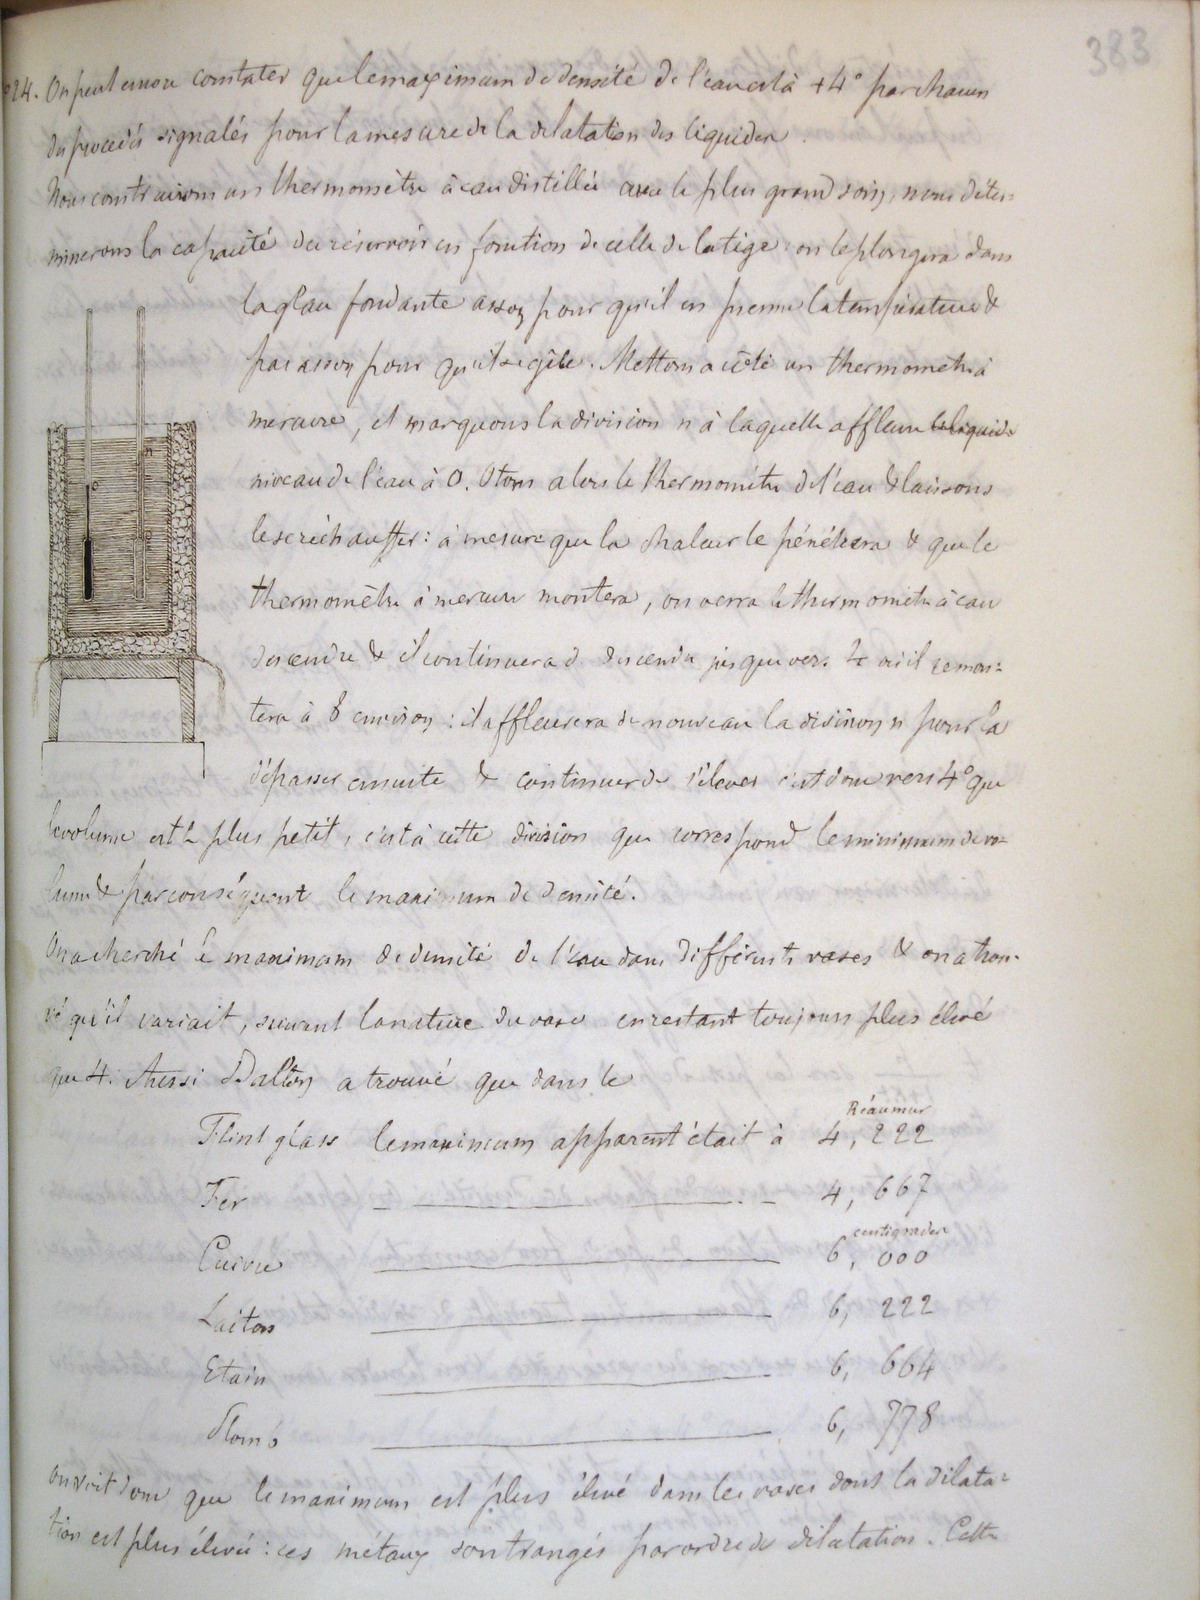 383
24. On peut encore constater que le maximum de densité de l'eau est à +4° par chacun
des procédés signalés pour la mesure de la dilatation des liquides.
Nous construirons un thermomètre à eau distillée avec le plus grand soin, nous déter-
minerons la capacité du réservoir en fonction de celle de la tige : on le plongera dans
la glace fondante assez pour qu'il en prenne la température &
pas assez pour qu'il se gèle. Mettons à côté un thermomètre à
mercure, et marquons la division n à laquelle affleure le liquide
niveau de l'eau à 0. Otons alors le thermomètre de l'eau & laissons
le se réchauffer : à mesure que la chaleur le pénétrera & que le
thermomètre à mercure montera, on verra le thermomètre à eau
descendre & il continuera à descendre jusque vers 4 où il remon-
tera à 8 environ : il affleurera de nouveau la division n pour la
dépasser ensuite & continuer de s'élever c'est donc vers 4° que
le volume est le plus petit, c'est à cette division que correspond le minimum de vo-
lume & par conséquent le maximum de densité.
On a cherché le maximum de densité de l'eau dans différents vases & on a trou-
vé qu'il variait, suivant la nature du vase en restant toujours plus élevé
que 4. Aussi Dalton a trouvé que dans le
Réaumur
Flint glass le maximum apparent était à 4, 222
Fer 4, 667
centigrades
Cuivre 6, 000
Laiton 6, 222
Etain 6, 664
Plomb 6, 778
On voit donc que le maximum est plus élevé dans les vases dont la dilata-
tion est plus élevée : ces métaux sont rangés par ordre de dilatation. Cette
n
o
o